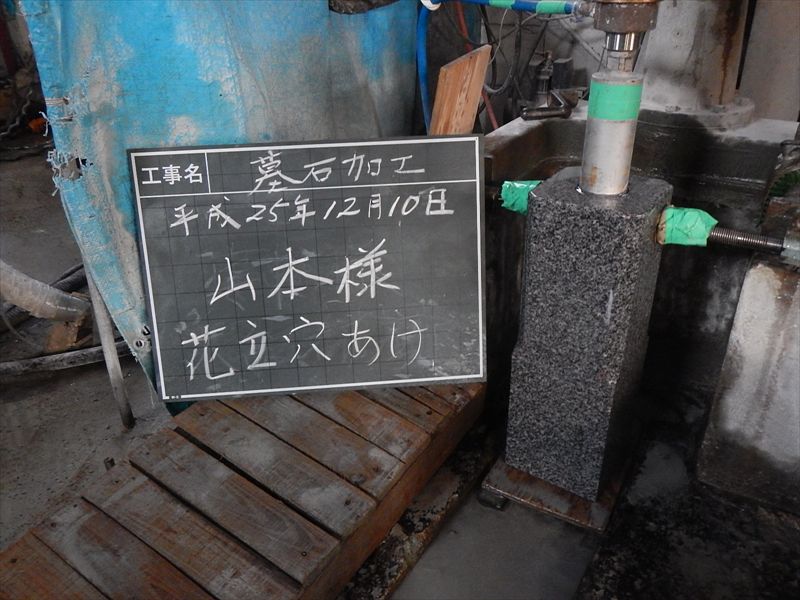 工事名 墓石加工
平成25年12月10日
山本様
花立穴あけ